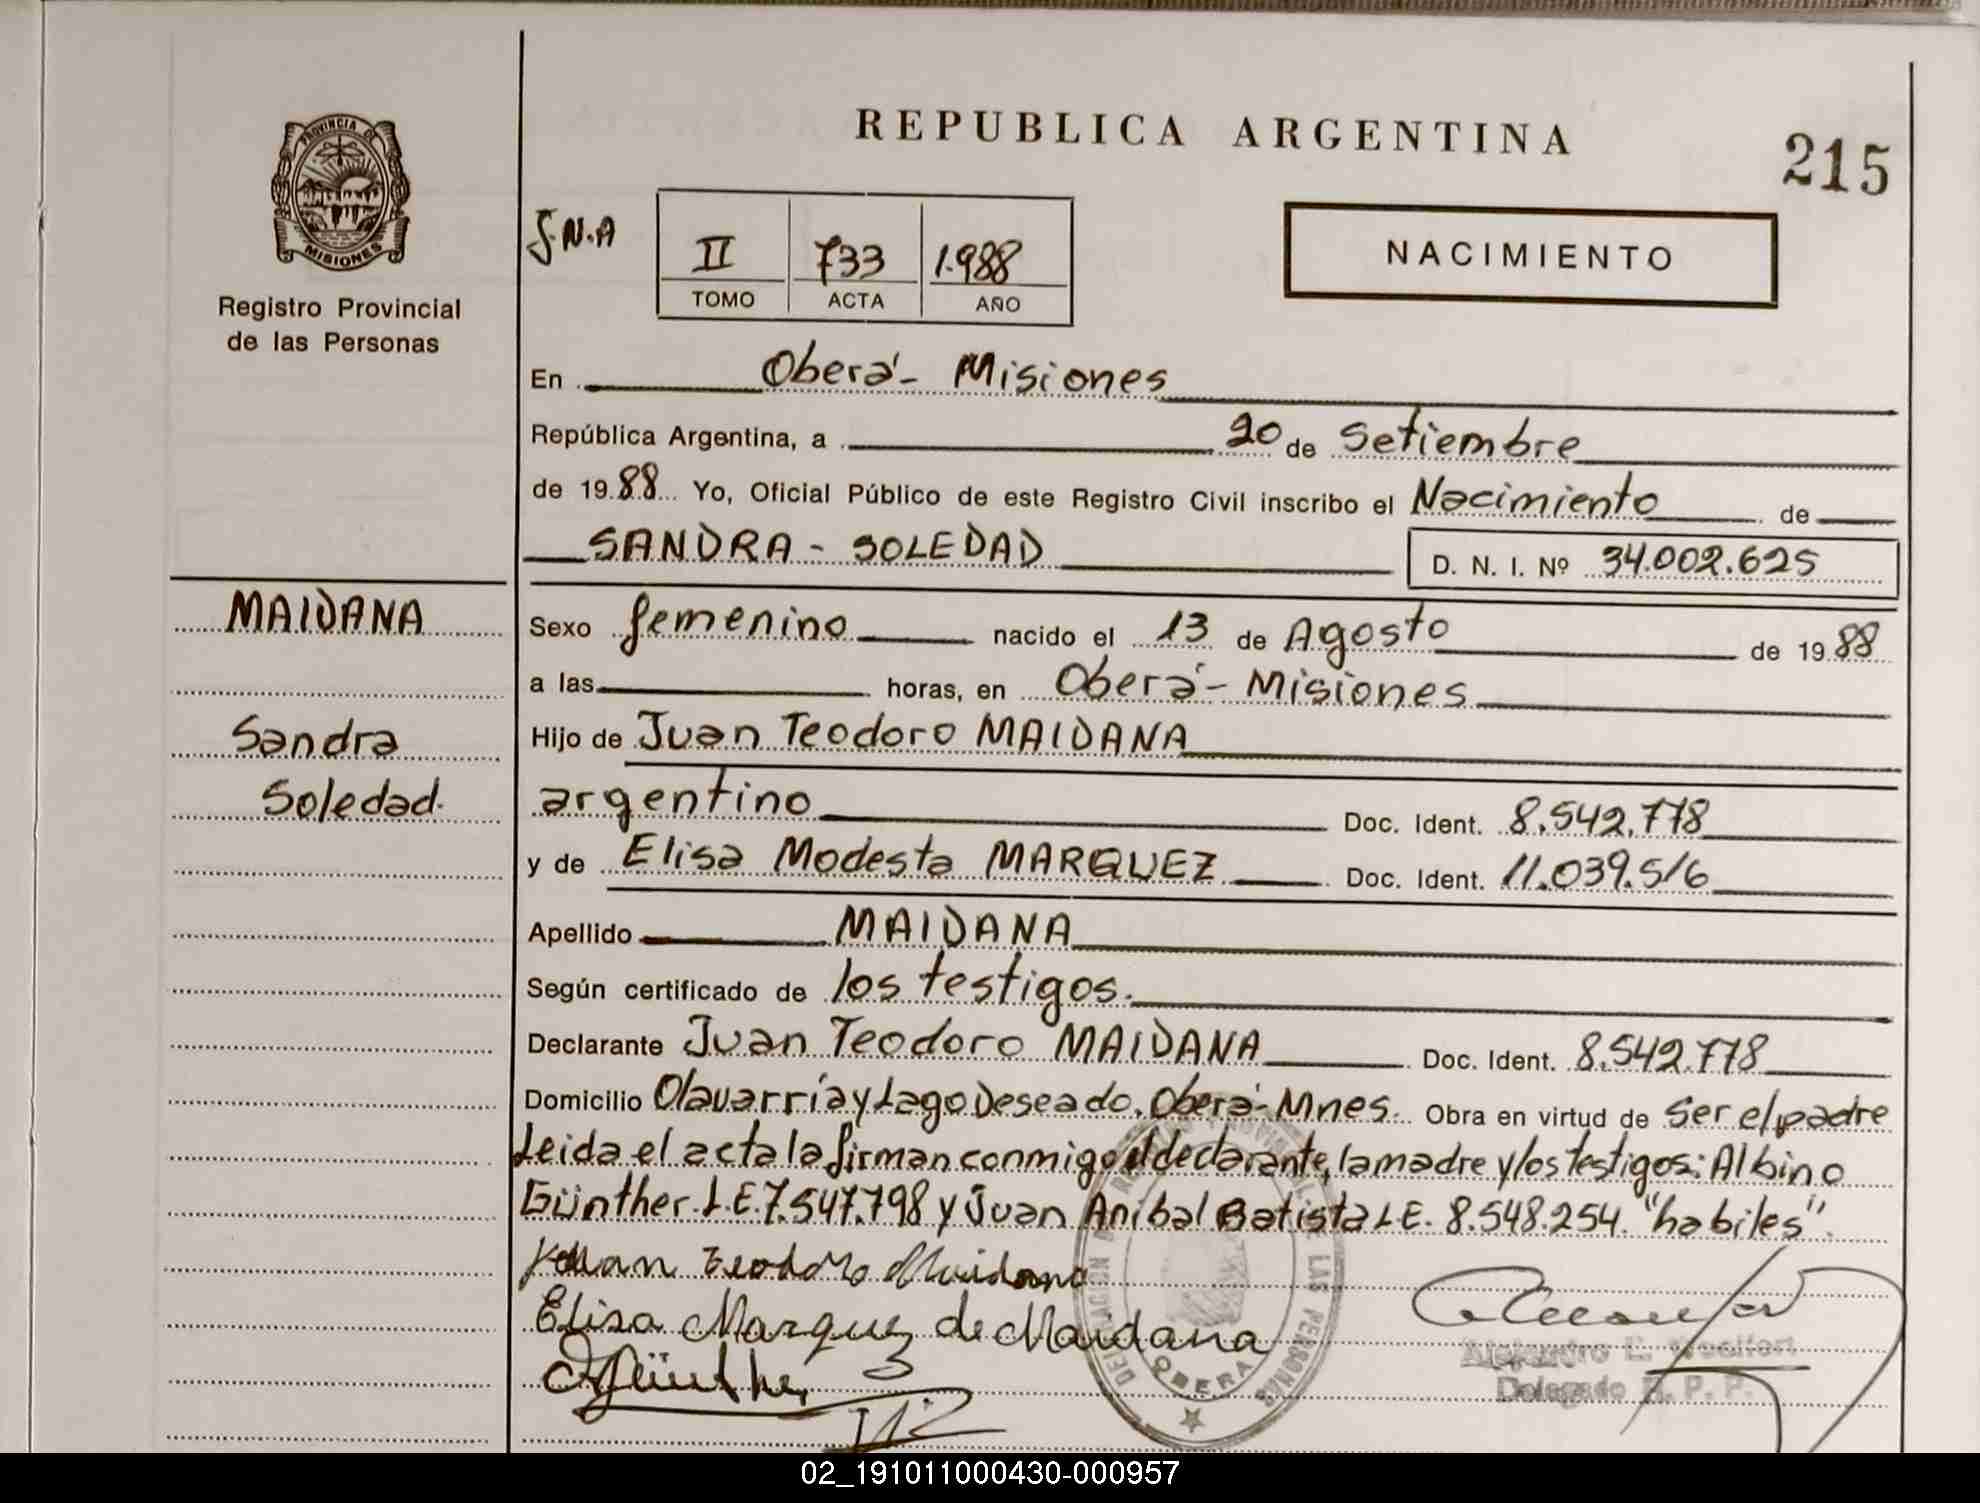 PROVINCIA DE
MISIONES
Registro Provincial
de las Personas
REPUBLICA ARGENTINA
215
S.N.A
II 733 1.988
TOMO ACTA AÑO
NACIMIENTO
En Oberá - Misiones
República Argentina, a 20 de Setiembre
de 1988 Yo, Oficial Público de este Registro Civil inscribo el Nacimiento de
SANDRA - SOLEDAD D. N. I. Nº 34.002.625
MAIDANA
Sandra
Soledad.
Sexo femenino nacido el 13 de Agosto de 1988
a las horas, en Oberá - Misiones
Hijo de Juan Teodoro MAIDANA
argentino Doc. Ident. 8.542.778
y de Elisa Modesta MARQUEZ Doc. Ident. 11.039.516
Apellido MAIDANA
Según certificado de los testigos.
Declarante Juan Teodoro MAIDANA Doc. Ident. 8.542.778
Domicilio Olavarría y Lago Deseado. Oberá - Mnes. Obra en virtud de Ser el padre
Leida el acta la firman conmigo el declarante, la madre y los testigos: Albino
Günther. L.E. 7.547.798 y Juan Anibal Batista L.E. 8.548.254. "habiles".
Juan Teodoro Maidana
Elisa Marquez de Maidana
Günther
DELEGACION LAS PERSONAS
OBERA
Alejandro E.
Delegado R. P. P.
02_191011000430-000957